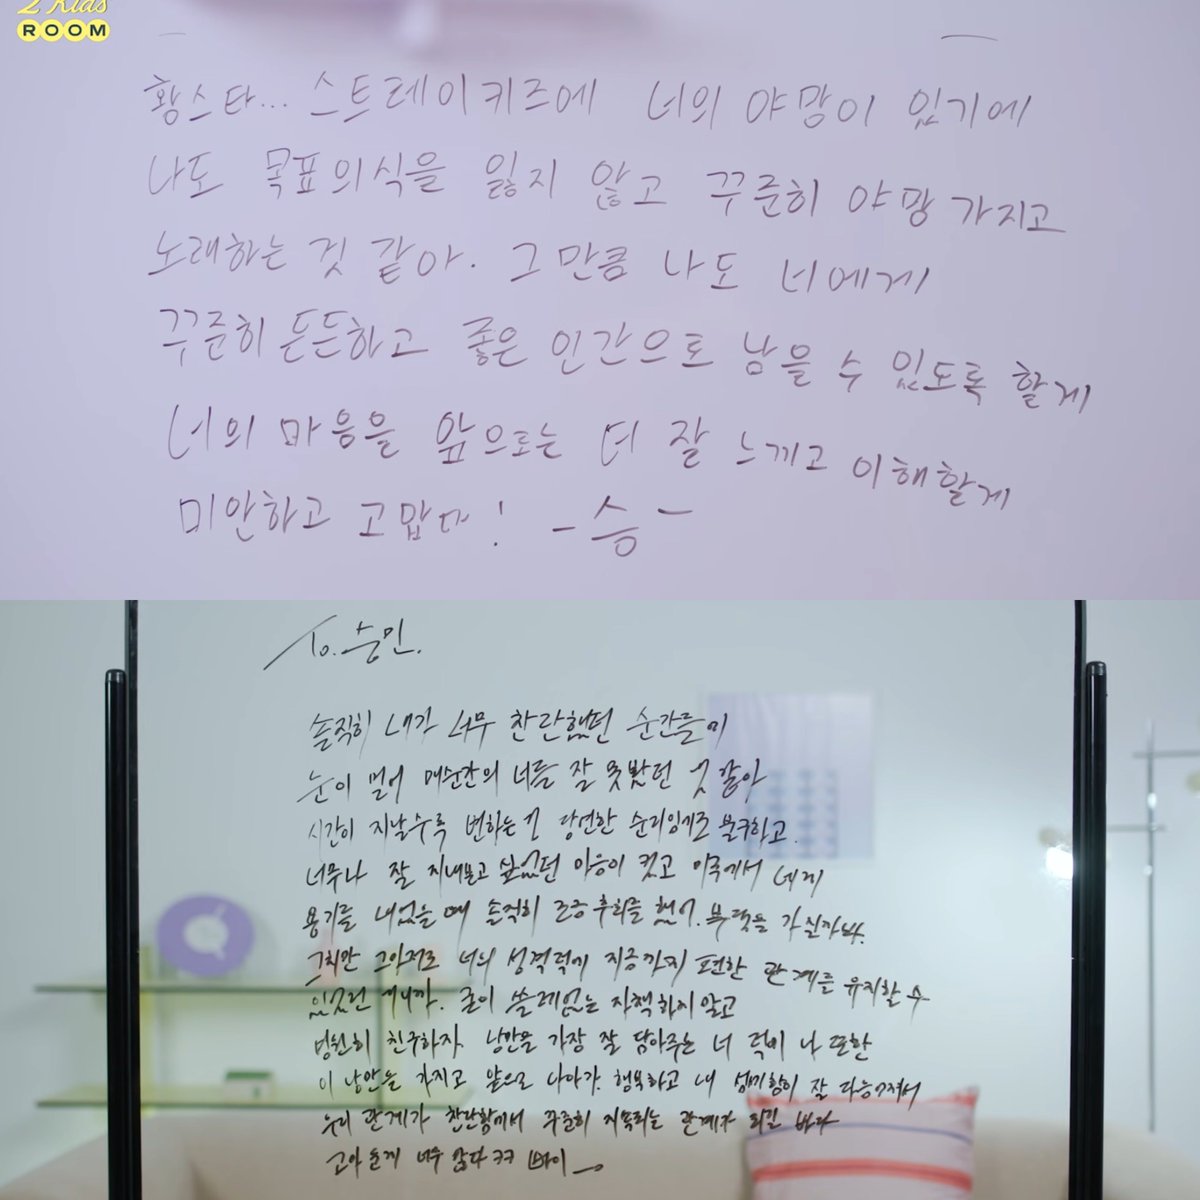 2 Kids
ROOM
황스타... 스트레이키즈에 너의 야망이 있기에
나도 목표의식을 잃지 않고 꾸준히 야망 가지고
노래하는 것 같아. 그만큼 나도 너에게
꾸준히 든든하고 좋은 인간으로 남을 수 있도록 할게
너의 마음을 앞으로는 더 잘 느끼고 이해할게
미안하고 고맙다! -승-
To. 승민.
솔직히 내가 너무 찬란했던 순간들이
눈이 멀어 매순간의 너를 잘 못봤던 것 같아
시간이 지날수록 변하는건 당연한 순리임에도 불구하고.
너무나 잘 지내보고 싶었던 마음이 컸고 미국에서 네게
용기를 내었을 때 솔직히 조금 후회를 했어. 부댓을 가실까봐.
그치만 그마저도 너의 성격덕에 지금까지 편한 관계를 유지할 수
있었던 거니까. 굳이 쓸데없는 자책하지말고
영원히 친구하자. 낭만을 가장 잘 담아주는 너 덕비 나 또한
이 낭만을 가지고 앞으로 나아가 행복하고 내
잘
우리 관계가 찬란함에서 꾸준히 지속되는 관계가 되길 바라
너무 많다 ㅋㅋ 바이